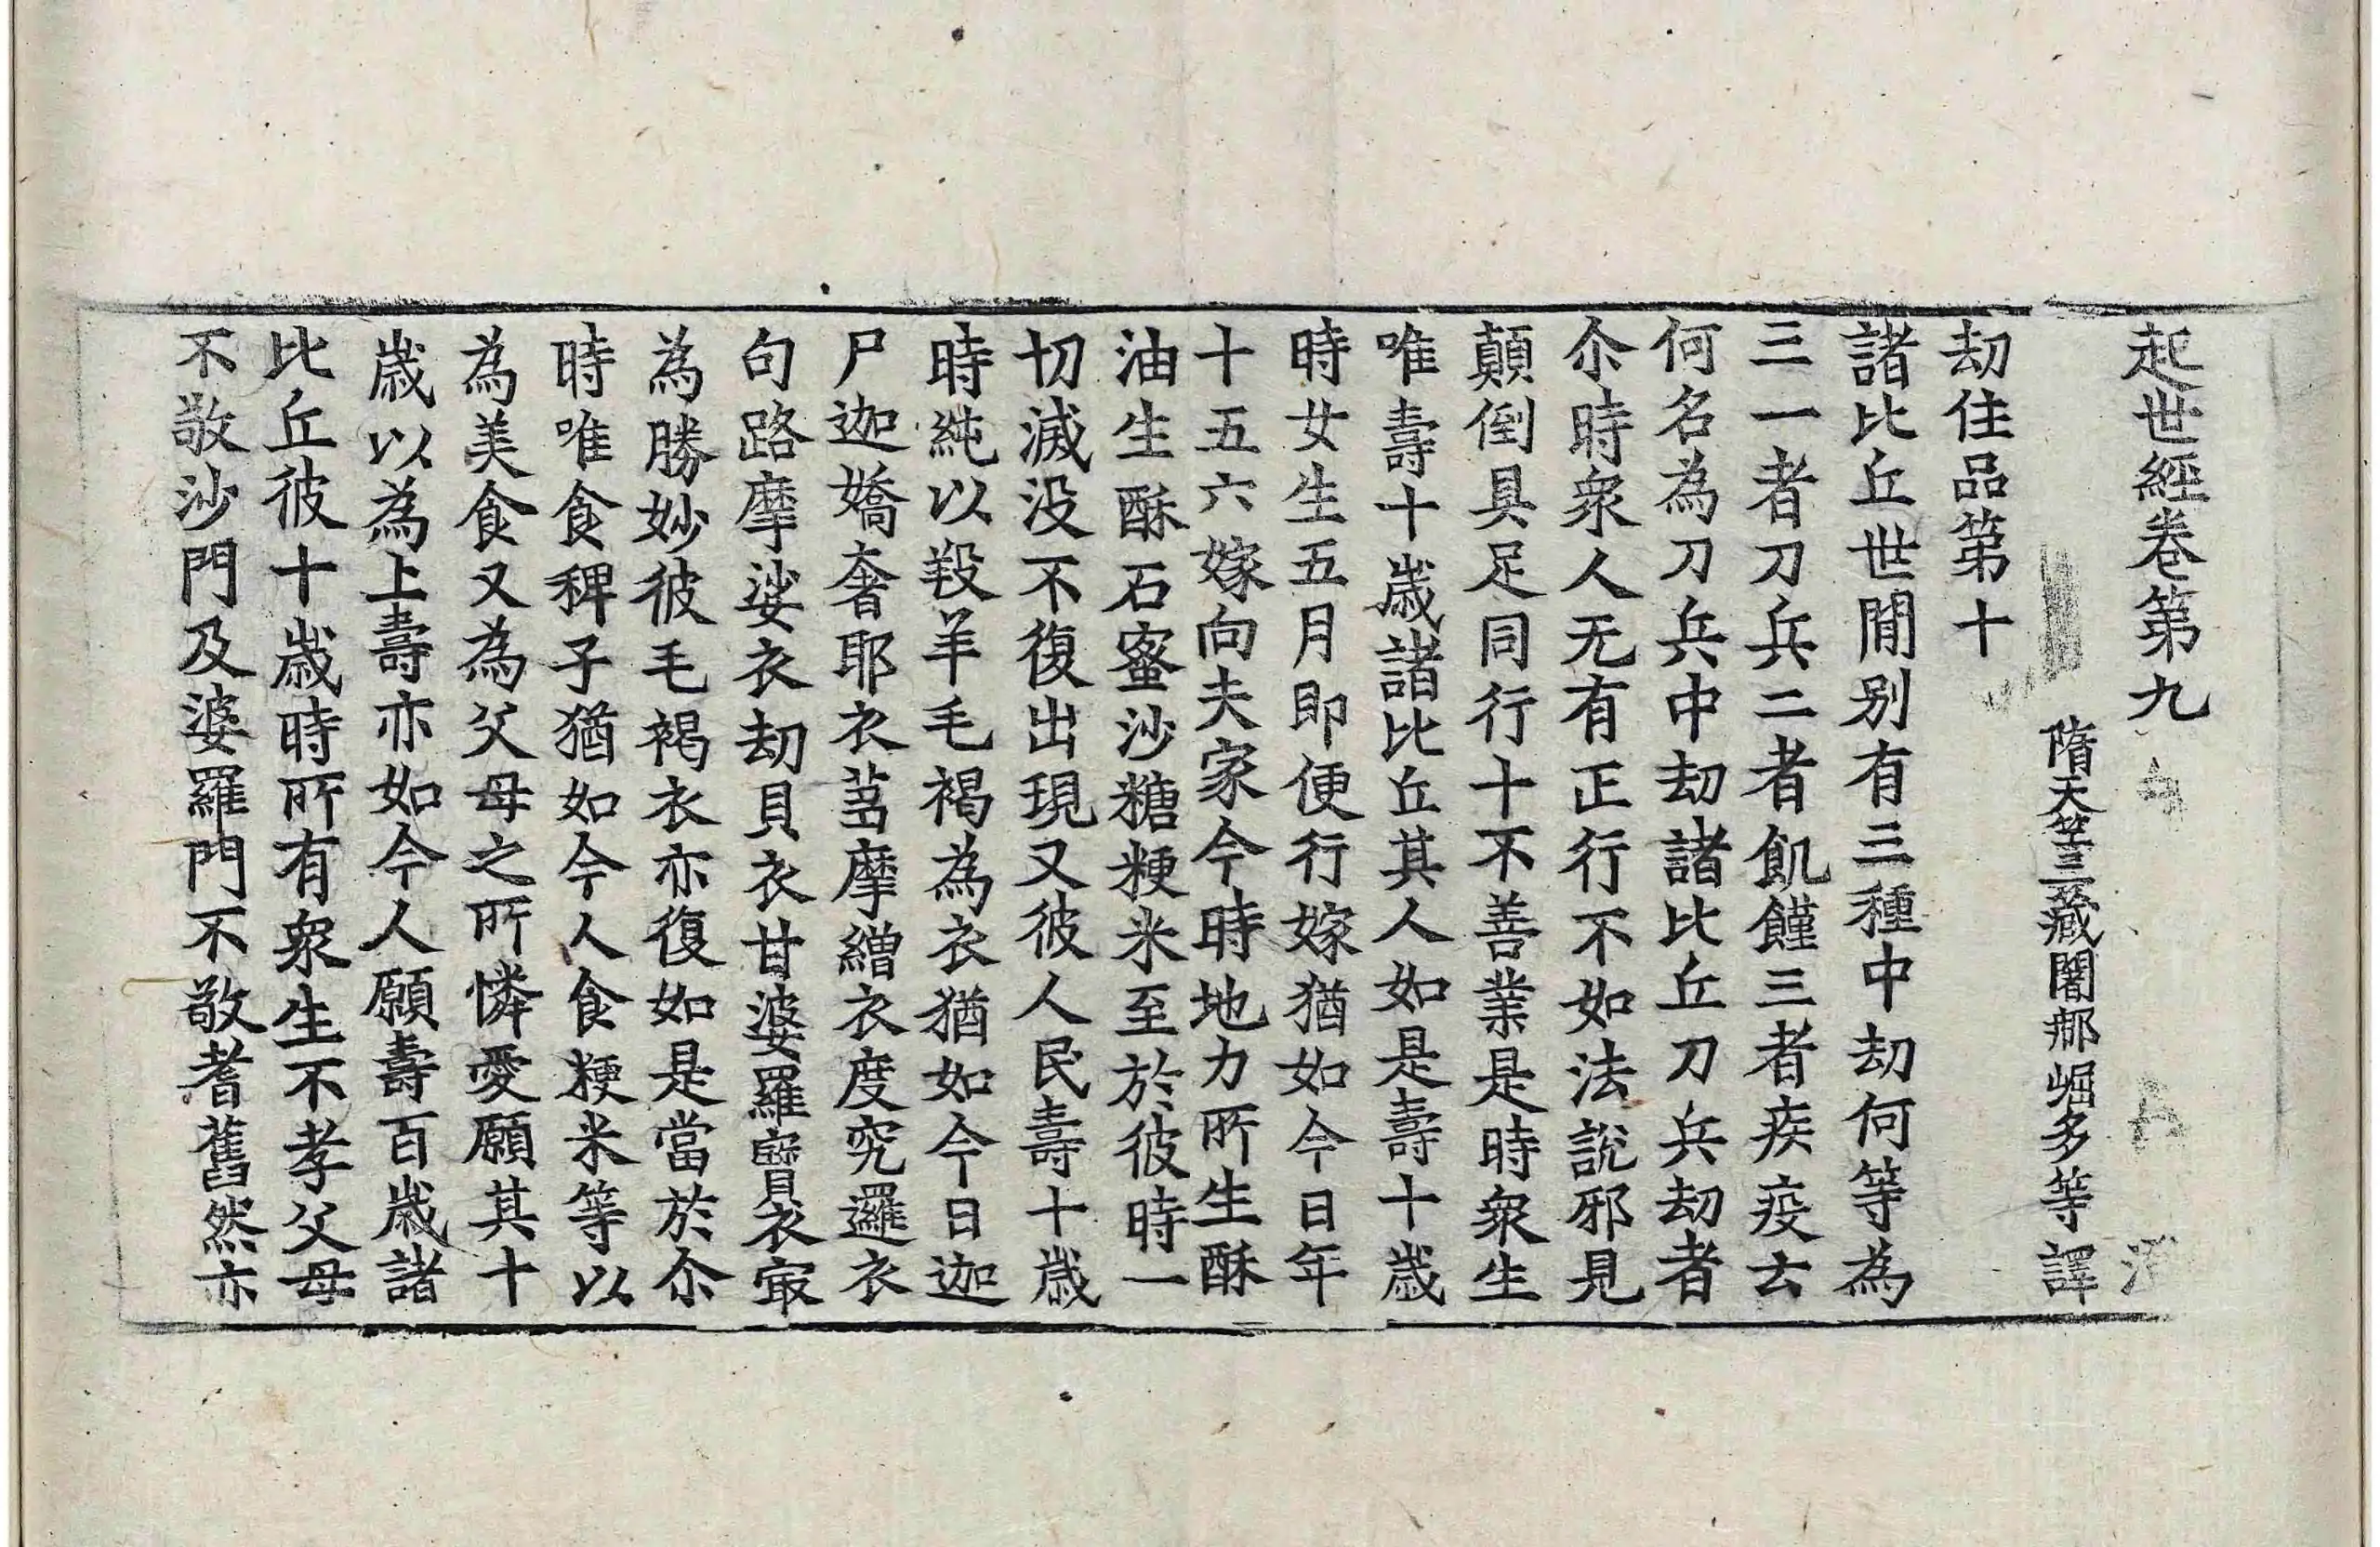 起世經卷第九
隋天竺三藏闍那崛多等譯
刼住品第十
諸比丘世間别有三種中刼何等為
三一者刀兵二者飢饉三者疾疫云
何名為刀兵中刼諸比丘刀兵刼者
尒時衆人无有正行不如法說邪見
顛倒具足同行十不善業是時衆生
唯壽十歲諸比丘其人如是壽十歲
時女生五月即便行嫁猶如今日年
十五六嫁向夫家今時地力所生酥
油生酥石蜜沙糖粳米至於彼時一
切滅没不復出現又彼人民壽十歲
時純以羖羊毛褐為衣猶如今日迦
尸迦嬌奢耶衣芻摩繒衣度究邏衣
句路摩娑衣刼貝衣甘婆羅寶衣㝡
為勝妙彼毛褐衣亦復如是當於尒
時唯食稗子猶如今人食粳米等以
為美食又為父母之所憐愛願其十
歲以為上壽亦如今人願壽百歲諸
比丘彼十歲時所有衆生不孝父母
不敬沙門及婆羅門不敬耆舊然亦